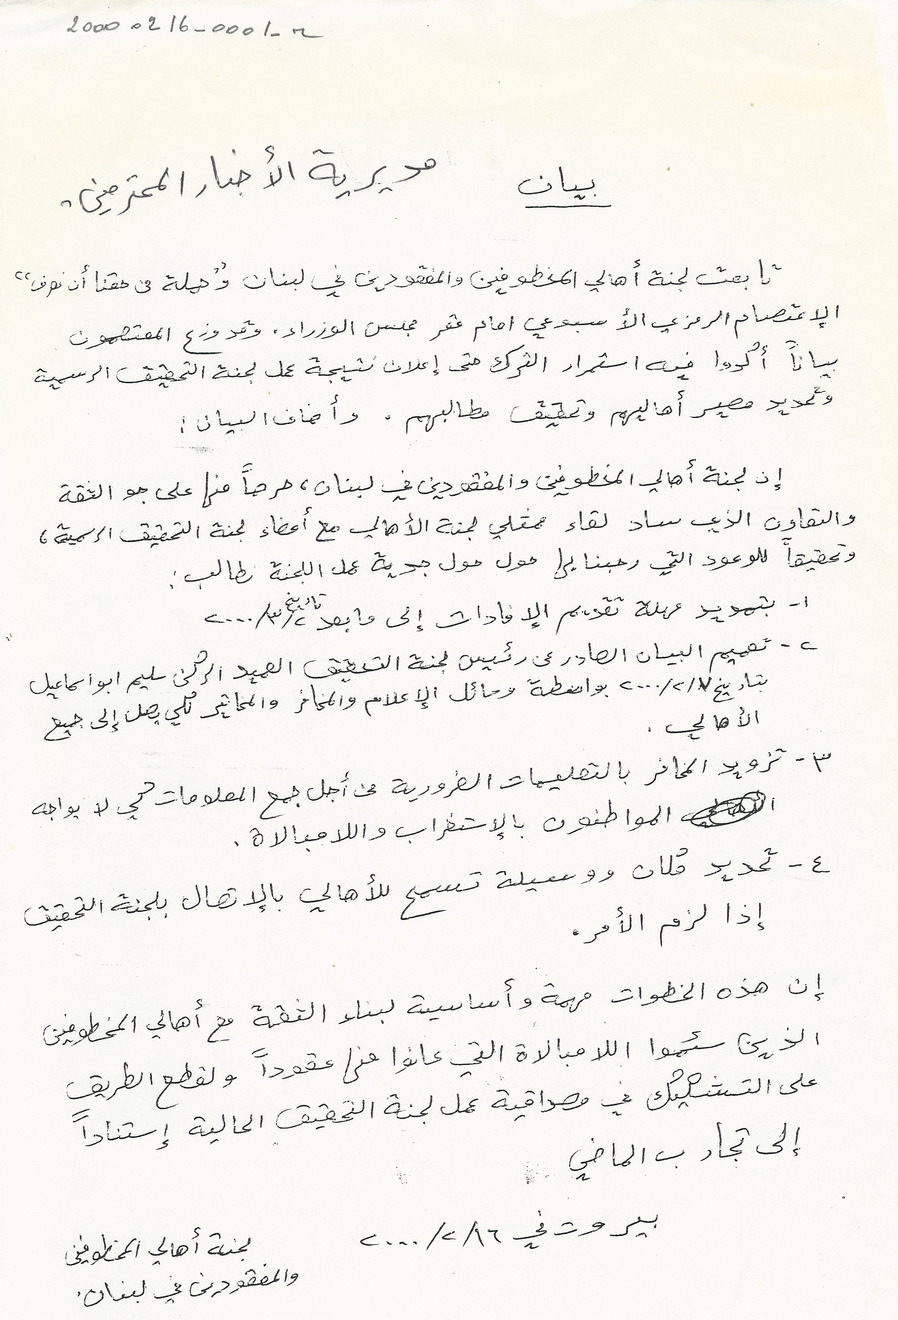 2000 0216-0001-م
بيان
مديرية الأخبار المحترمين،
تابعت لجنة أهالي المخطوفين والمفقودين في لبنان و"حملة من حقنا أن نعرف"
الإعتصام الرمزي الأسبوعي امام مقر مجلس الوزراء. وقد وزع المعتصمون
بياناً أكدوا فيه استمرار التحرك حتى إعلان نتيجة عمل لجنة التحقيق الرسمية
وتحديد مصير أهاليهم وتحقيق مطالبهم. وأضاف البيان:
إن لجنة أهالي المخطوفين والمفقودين في لبنان، حرصاً منها على جو الثقة
والتعاون الذي ساد لقاء ممثلي لجنة الأهالي مع أعضاء لجنة التحقيق الرسمية،
وتحقيقاً للوعود التي رحبنا بها حول حول جدية عمل اللجنة نطالب:
١- بتمديد مهلة تقديم الإفادات إلى ما بعد تاريخ ٢/٣/٢٠٠٠
٢- تعميم البيان الصادر عن رئيس لجنة التحقيق العميد الركن سليم ابو اسماعيل
بتاريخ ٢٠٠٠/٢/٧ بواسطة وسائل الإعلام والمخافر والمخاتير لكي يصل إلى جميع
الأهالي.
٣- تزويد المخافر بالتعليمات الضرورية من أجل جمع المعلومات كي لا يواجه
المواطنون بالإستغراب واللامبالاة.
٤- تحديد مكان ووسيلة تسمح للأهالي بالإتصال بلجنة التحقيق
إذا لزم الأمر.
إن هذه الخطوات مهمة وأساسية لبناء الثقة مع أهالي المخطوفين
الذين سئموا اللامبالاة التي عانوا منها عقوداً ولقطع الطريق
على التشكيك في مصداقية عمل لجنة التحقيق الحالية إستناداً
إلى تجارب الماضي
بيروت في ٢٠٠٠/٢/١٦
لجنة أهالي المخطوفين
والمفقودين في لبنان.